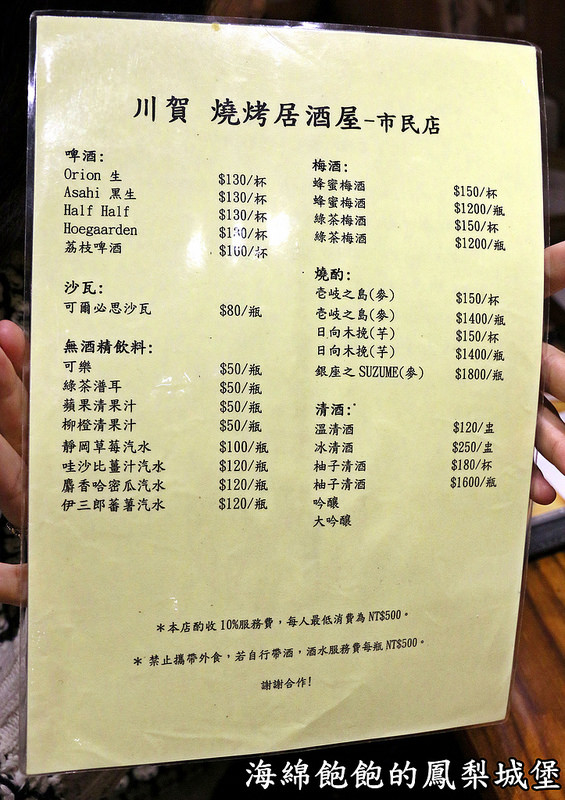 川賀 燒烤居酒屋-市民店
啤酒:
Orion 生 $130/杯
Asahi 黑生 $130/杯
Half Half $130/杯
Hoegaarden $130/杯
荔枝啤酒 $160/杯
沙瓦:
可爾必思沙瓦 $80/瓶
無酒精飲料:
可樂 $50/瓶
綠茶潽耳 $50/瓶
蘋果清果汁 $50/瓶
柳橙清果汁 $50/瓶
靜岡草莓汽水 $100/瓶
哇沙比薑汁汽水 $120/瓶
麝香哈密瓜汽水 $120/瓶
伊三郎蕃薯汽水 $120/瓶
梅酒:
蜂蜜梅酒 $150/杯
蜂蜜梅酒 $1200/瓶
綠茶梅酒 $150/杯
綠茶梅酒 $1200/瓶
燒酌:
壱岐之島(麥) $150/杯
壱岐之島(麥) $1400/瓶
日向木挽(芋) $150/杯
日向木挽(芋) $1400/瓶
銀座之SUZUME(麥) $1800/瓶
清酒:
溫清酒 $120/盅
冰清酒 $250/盅
柚子清酒 $180/杯
柚子清酒 $1600/瓶
吟釀
大吟釀
＊本店酌收10%服務費，每人最低消費為NT$500。
＊禁止攜帶外食，若自行帶酒，酒水服務費每瓶NT$500。
謝謝合作!
海綿飽飽的鳳梨城堡